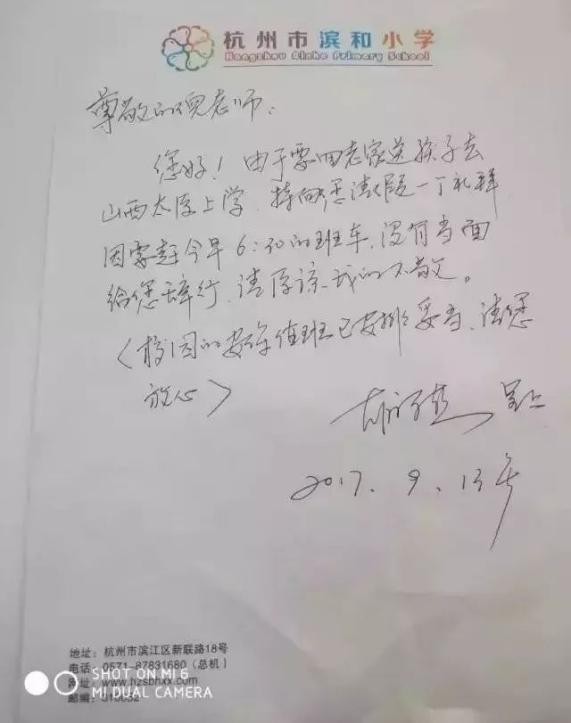 杭州市滨和小学
Hangzhou Binhe Primary School
尊敬的倪老师：
您好！由于要回老家送孩子去
山西太原上学，特向您请假一个礼拜
因要赶今早6:30的班车，没有当面
给您辞行，请原谅我的不敬。
（校园的安保值班已安排妥当，请您
放心）
呈上
2017.9.13午
地址：杭州市滨江区新联路18号
电话：0571-87831680（总机）
www.hzsbhxx.com
邮编：310052
SHOT ON MI 6
MI DUAL CAMERA